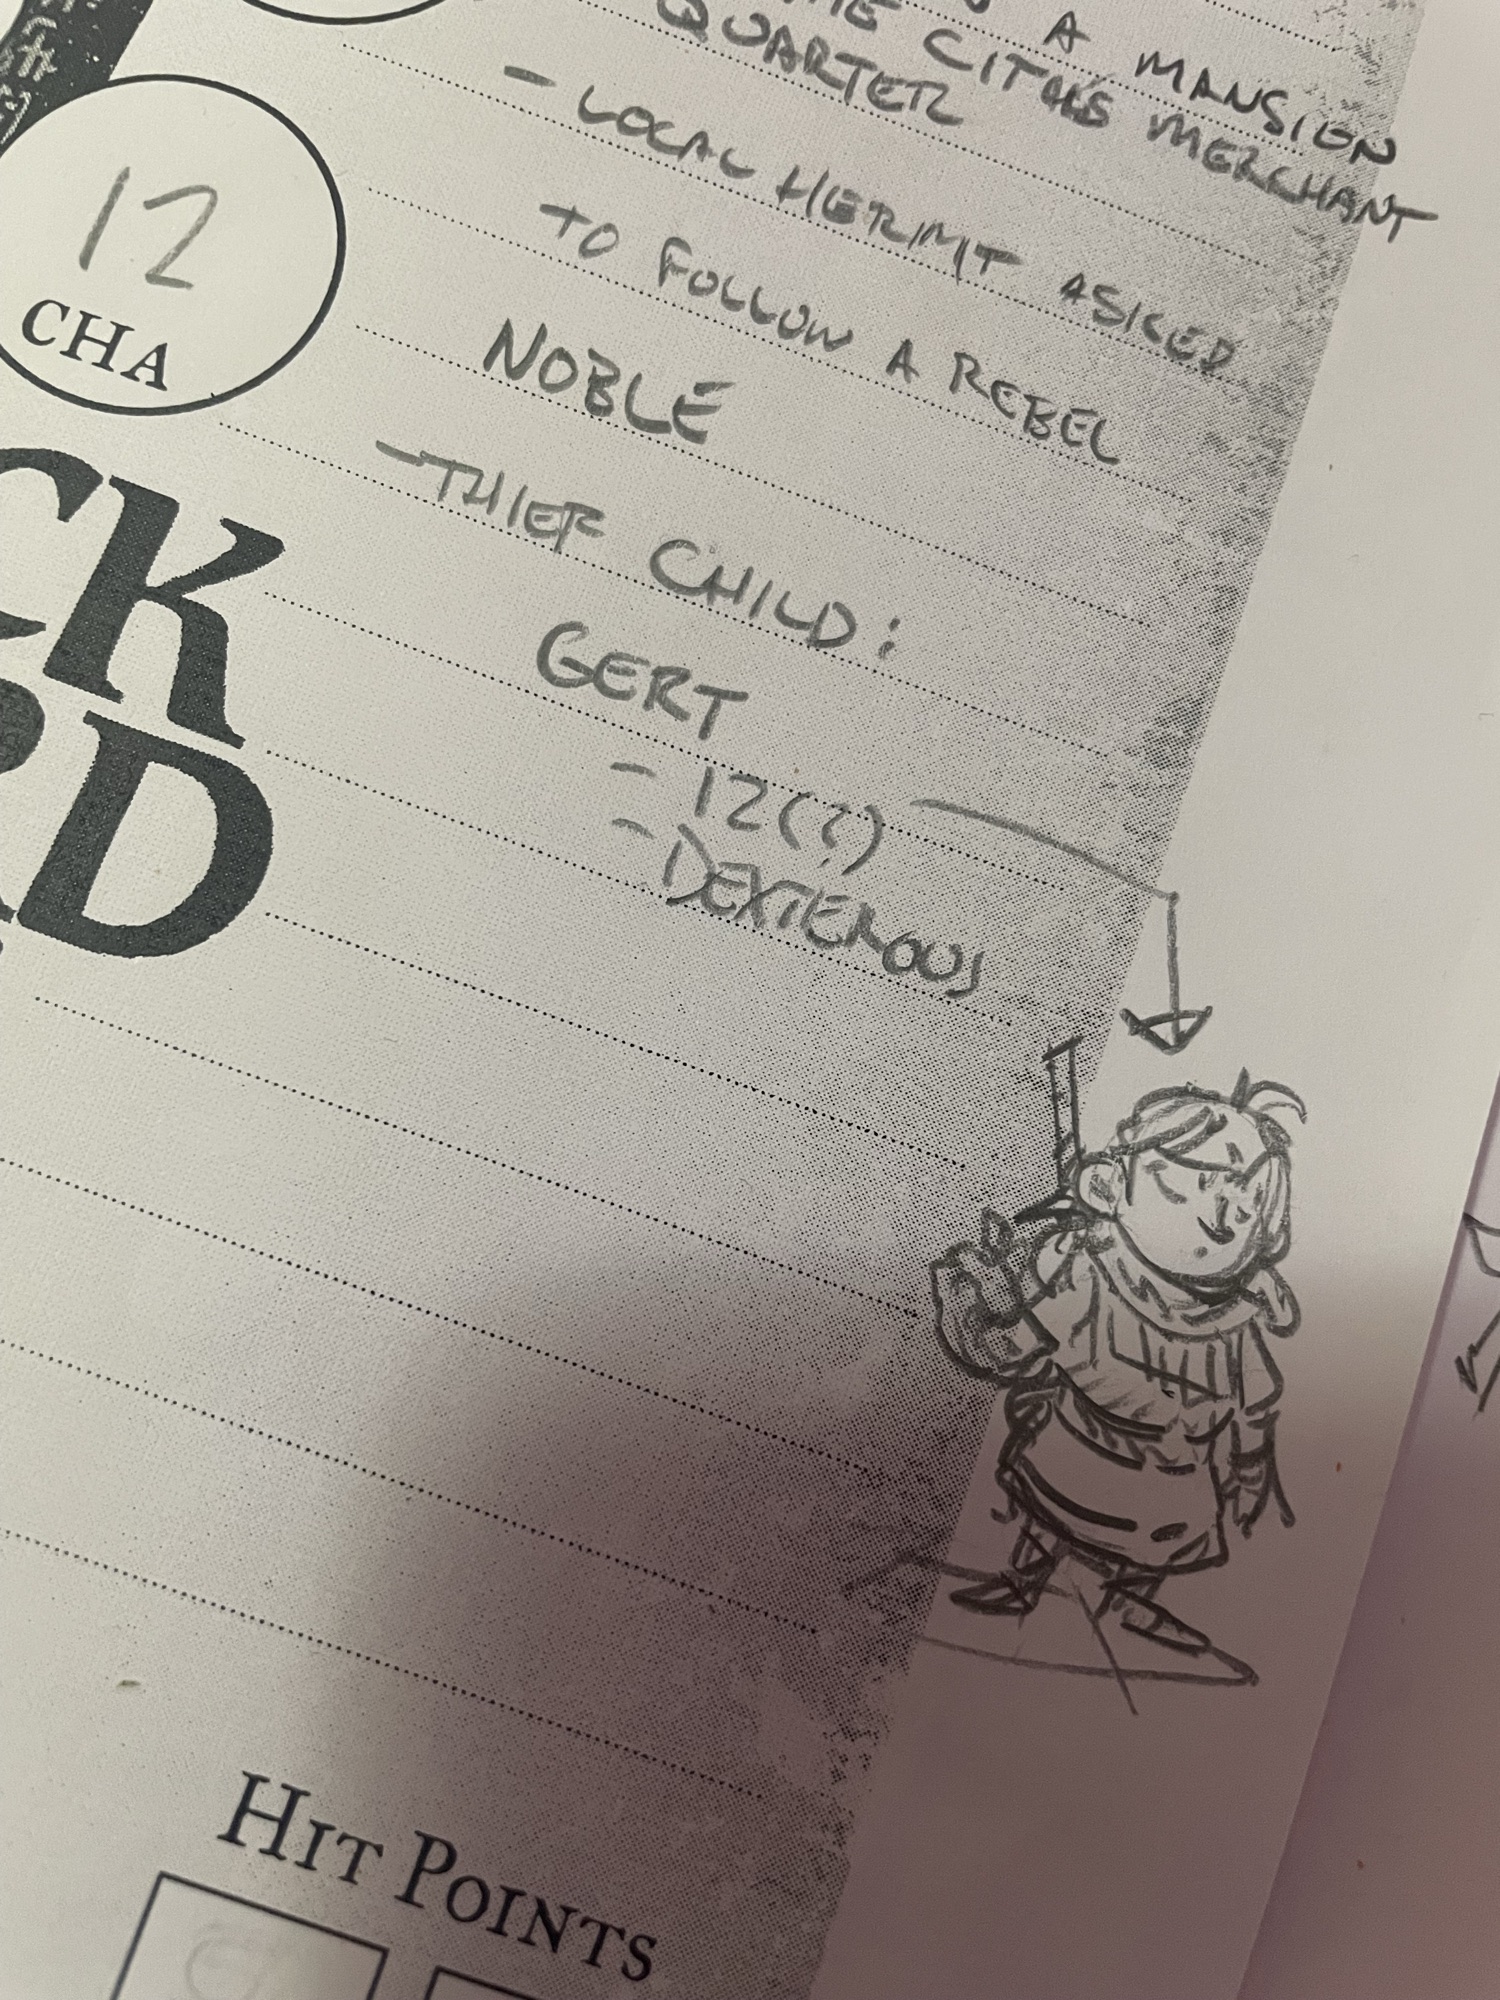 A MANSION
THE CITY'S MERCHANT
QUARTER
- LOCAL HERMIT ASKED
TO FOLLOW A REBEL
NOBLE
- THIEF CHILD:
GERT
- 12(?)
- DEXTEROUS
12
CHA
CK
RD
HIT POINTS